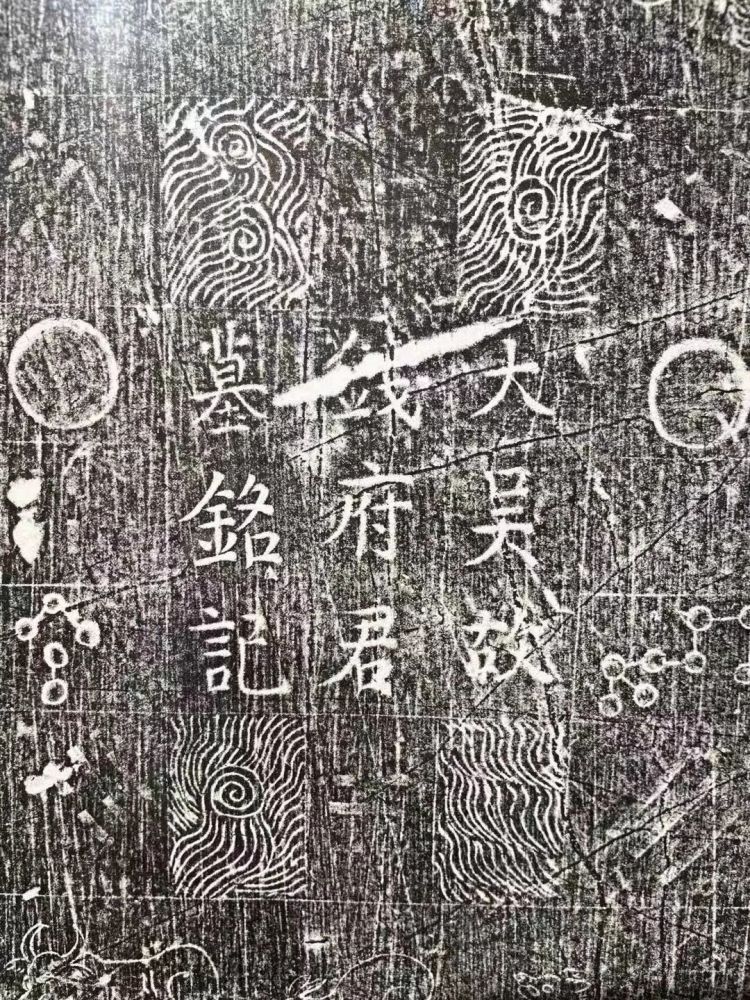 大吴故
錢府君
墓銘記